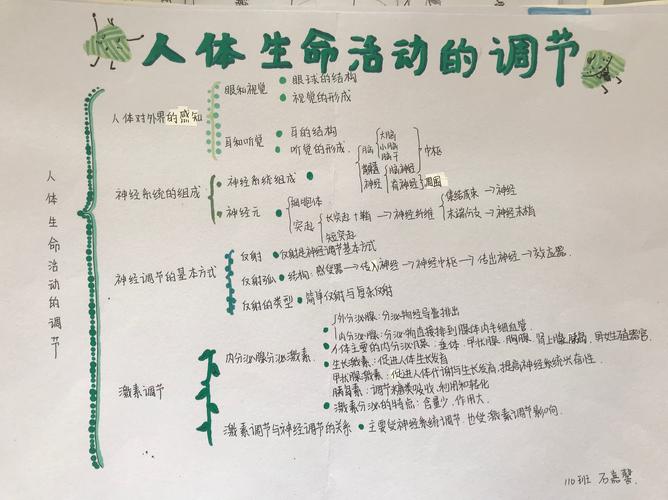 人体生命活动的调节
人体生命活动的调节
人体对外界的感知
眼和视觉
眼球的结构
视觉的形成
耳和听觉
耳的结构
听觉的形成
神经系统的组成
神经系统组成
脑
大脑
小脑
脑干
脊髓
中枢
神经
脑神经
脊神经
周围
神经元
胞体
突起
长突起+鞘
短突起
神经纤维
集结成束→神经
末端分支→神经末梢
神经调节的基本方式
反射
反射是神经调节基本方式
反射弧
结构:感受器→传入神经→神经中枢→传出神经→效应器.
反射的类型
简单反射与复杂反射
激素调节
内分泌腺分泌激素.
外分泌腺:分泌物经导管排出
内分泌腺:分泌物直接排到腺体内毛细血管.
人体主要的内分泌腺:垂体.甲状腺.胸腺.肾上腺.胰岛.男女生殖器官.
生长激素:促进人体生长发育
甲状腺激素:促进人体代谢与生长发育,提高神经系统兴奋性.
胰岛素:调节糖类吸收.利用和转化
激素分泌的特点:含量少.作用大.
激素调节与神经调节的关系
主要受神经系统调节.也受激素调节影响.
110班